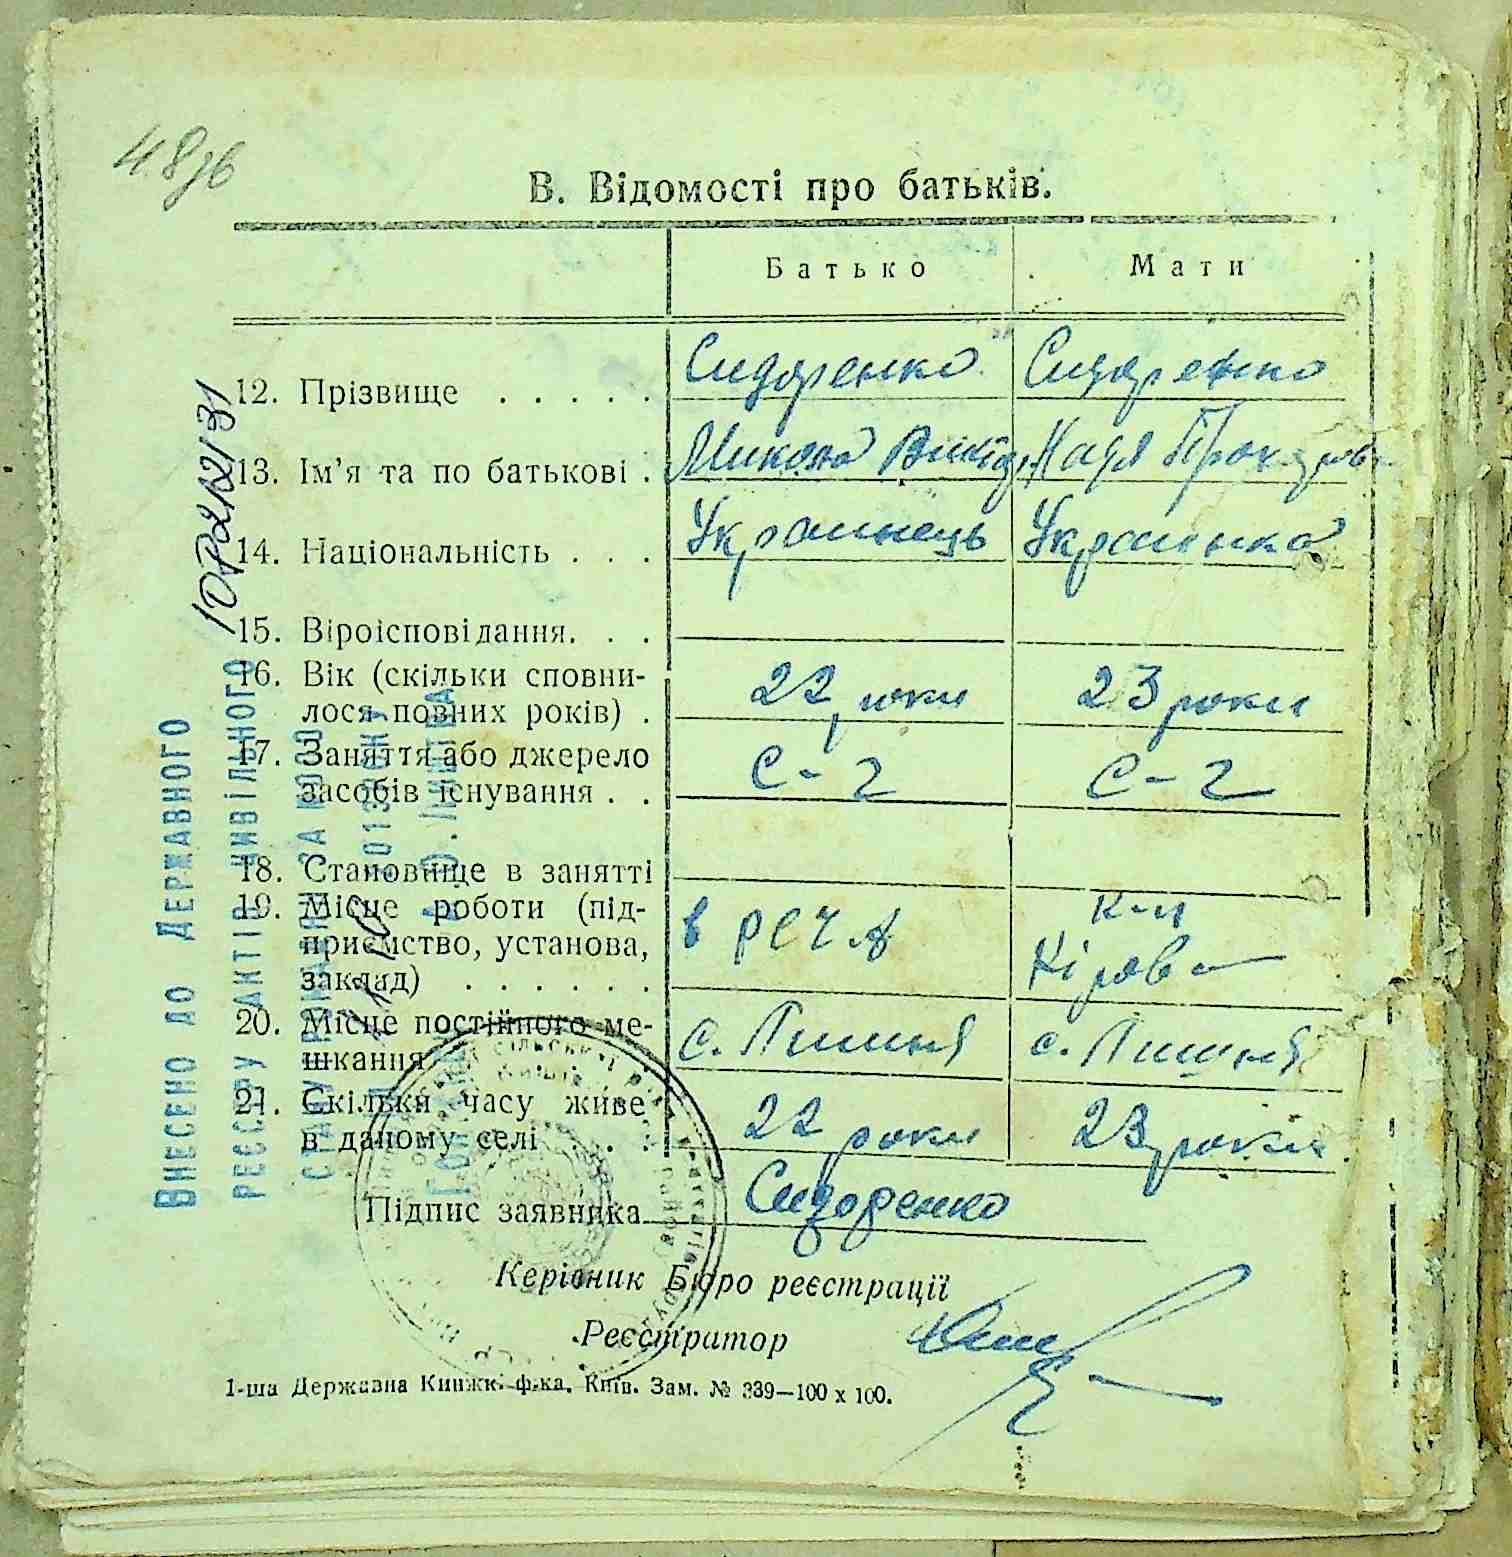 48зв
В. Відомості про батьків.
Батько Мати
12. Прізвище . . . . . Сидоренко Сидоренко
13. Ім’я та по батькові . Микола Надя
14. Національність . . . Украинець Украинка
15. Віроісповідання. . .
16. Вік (скільки сповни-
лося повних років) . 22 роки 23 роки
17. Заняття або джерело
засобів існування . . С-г С-г
18. Становище в занятті
19. Місце роботи (під-
приємство, установа,
заклад) . . . . . . в К-п
Кірова
20. Місце постійного ме-
шкання с. с.
21. Скільки часу живе
в даному селі . . . 22 роки 23 роки.
Підпис заявника Сидоренко
Керівник Бюро реєстрації
Реєстратор
1-ша Державна Книжк. ф-ка. Київ. Зам. № 339—100 х 100.
Внесено до Державного
реєстру актів цивільного
стану